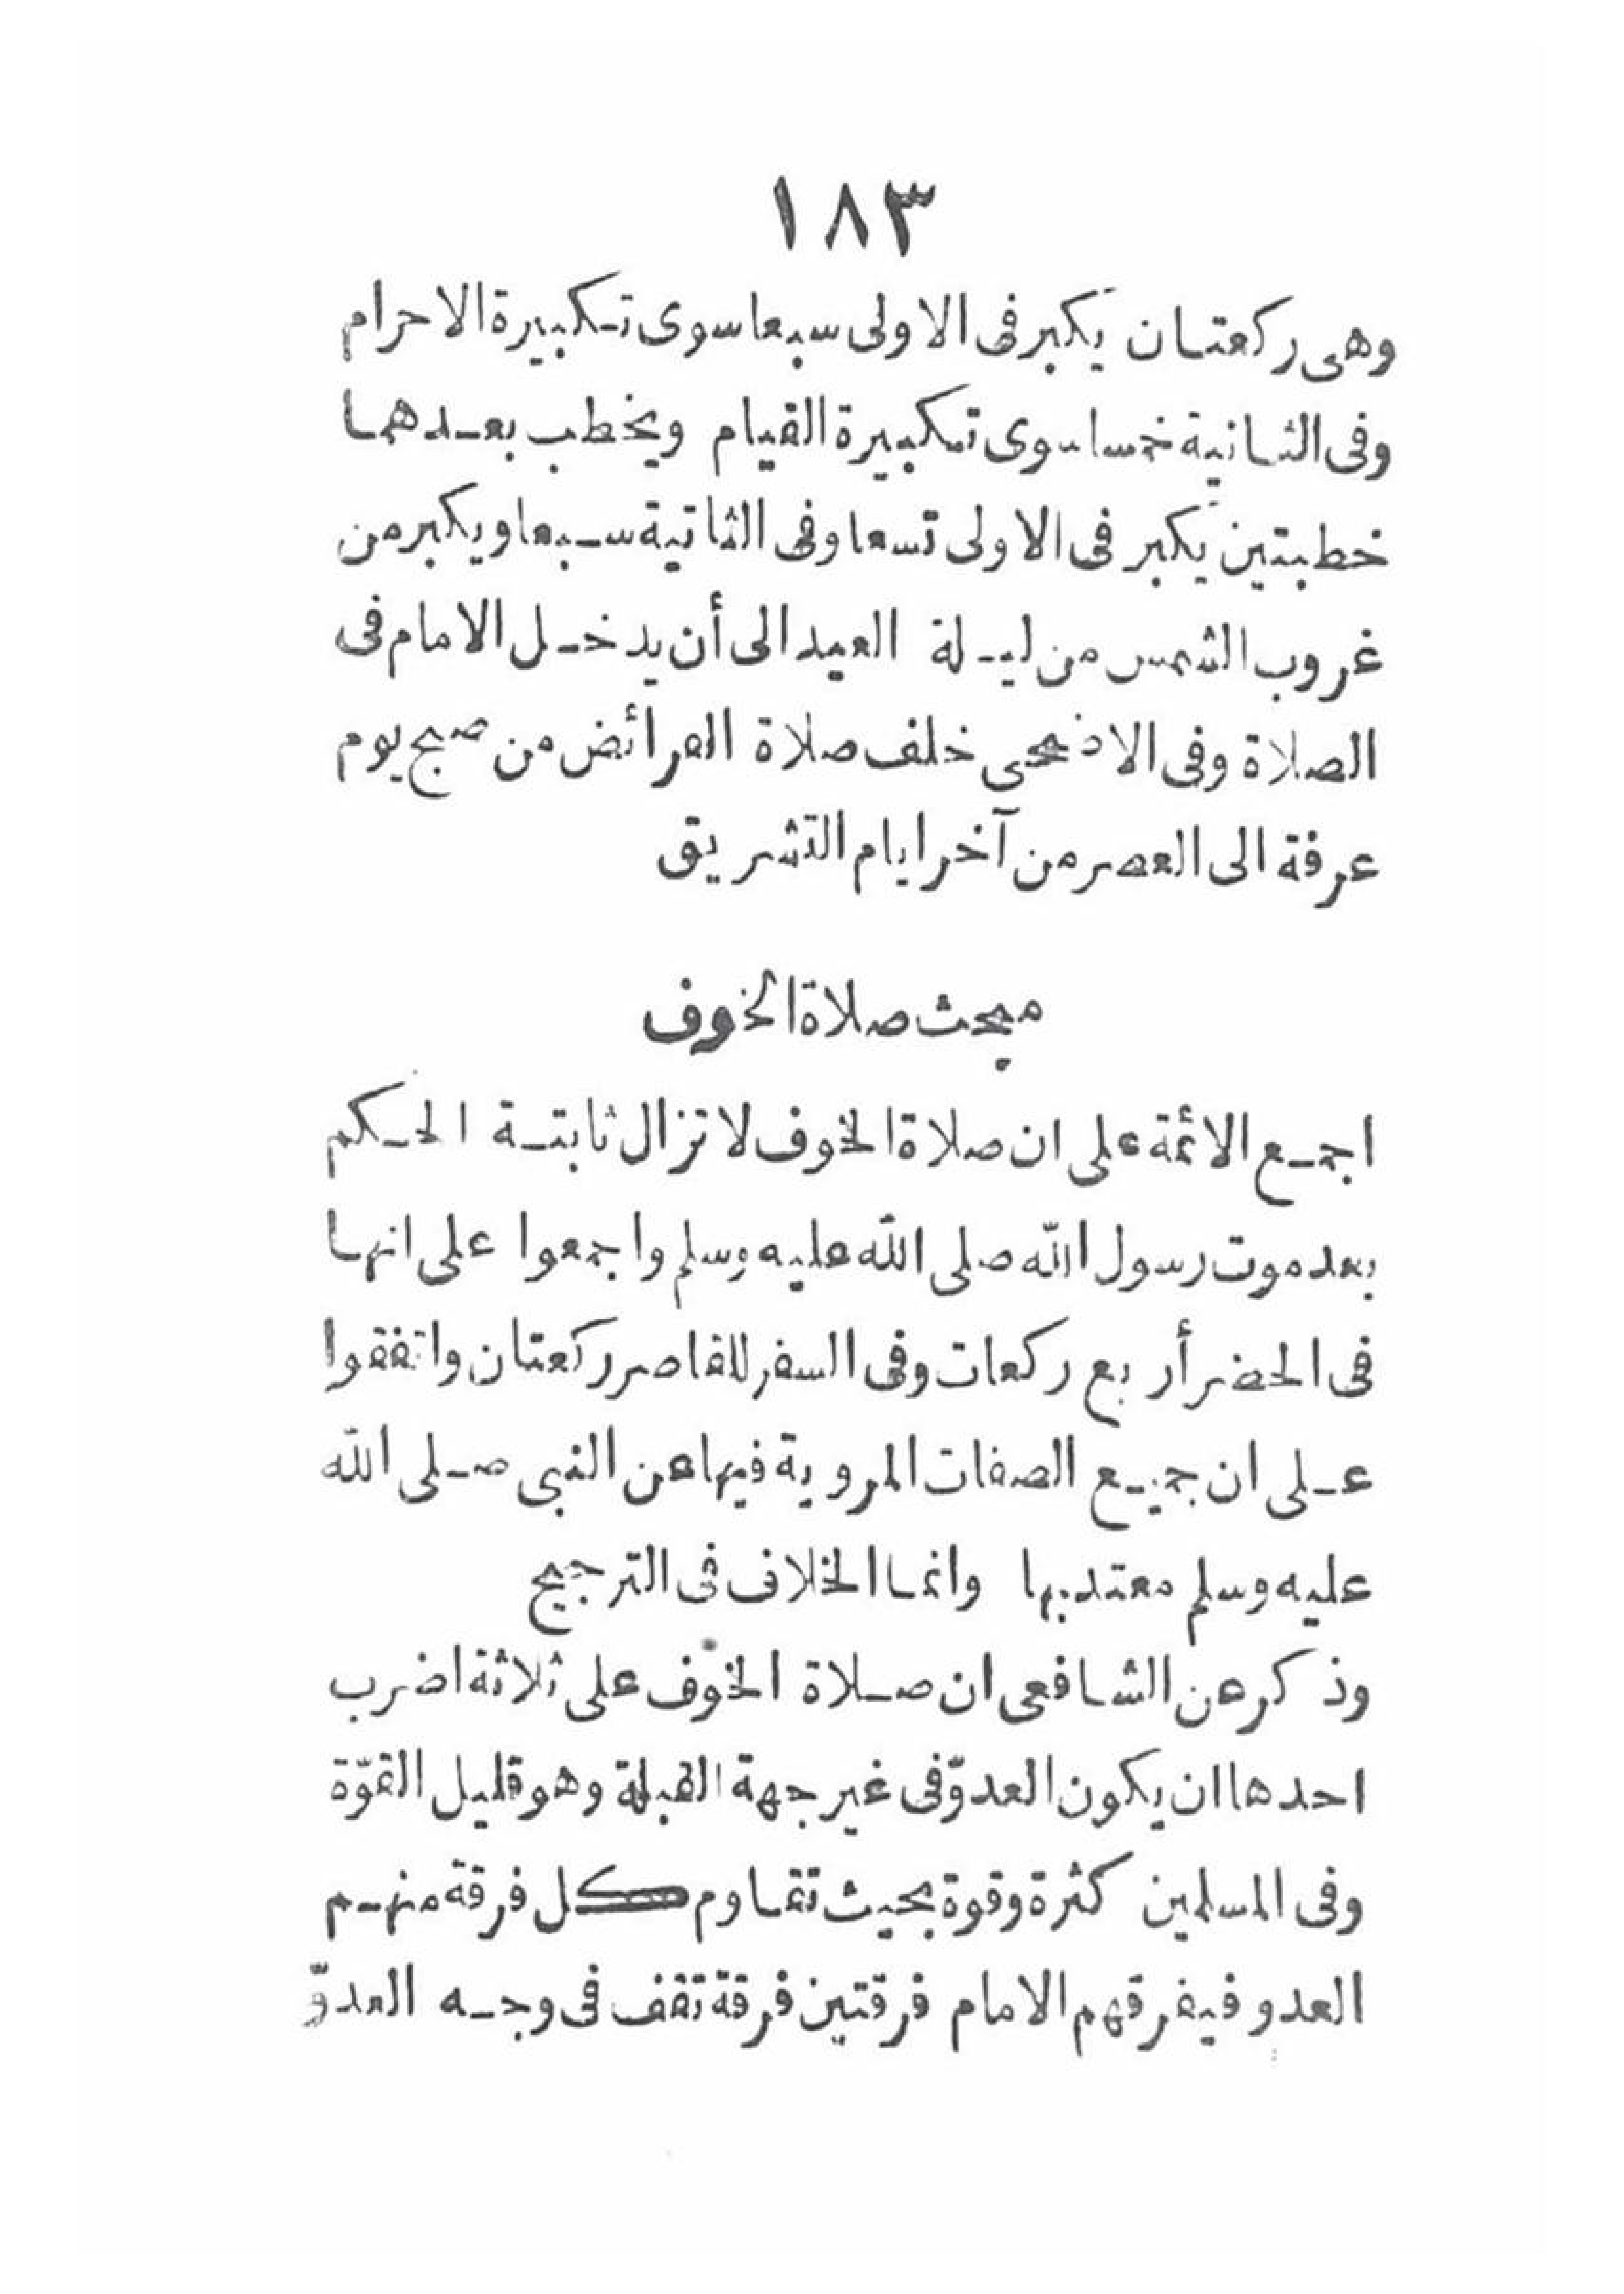 ١٨٣
وهى ركعتان يكبر فى الاولى سبعا سوى تكبيرة الاحرام
وفى الثانية خمسا سوى تكبيرة القيام ويخطب بعدهما
خطبتين يكبر فى الاولى تسعا وفى الثانية سبعا ويكبر من
غروب الشمس من ليلة العيد الى أن يدخل الامام فى
الصلاة وفى الاضحى خلف صلاة الفرائض من صبح يوم
عرفة الى العصر من آخر ايام التشريق
مبحث صلاة الخوف
اجمع الائمة على ان صلاة الخوف لا تزال ثابتة الحكم
بعد موت رسول الله صلى الله عليه وسلم واجمعوا على انها
فى الحضر أربع ركعات وفى السفر للقاصر ركعتان واتفقوا
على ان جميع الصفات المروية فيها عن النبى صلى الله
عليه وسلم معتد بها وانما الخلاف فى الترجيح
وذكر عن الشافعى ان صلاة الخوف على ثلاثة اضرب
احدها ان يكون العدوّ فى غير جهة القبلة وهو قليل القوّة
وفى المسلمين كثرة وقوة بحيث تقاوم كل فرقة منهم
العدو فيفرقهم الامام فرقتين فرقة تقف فى وجه العدوّ